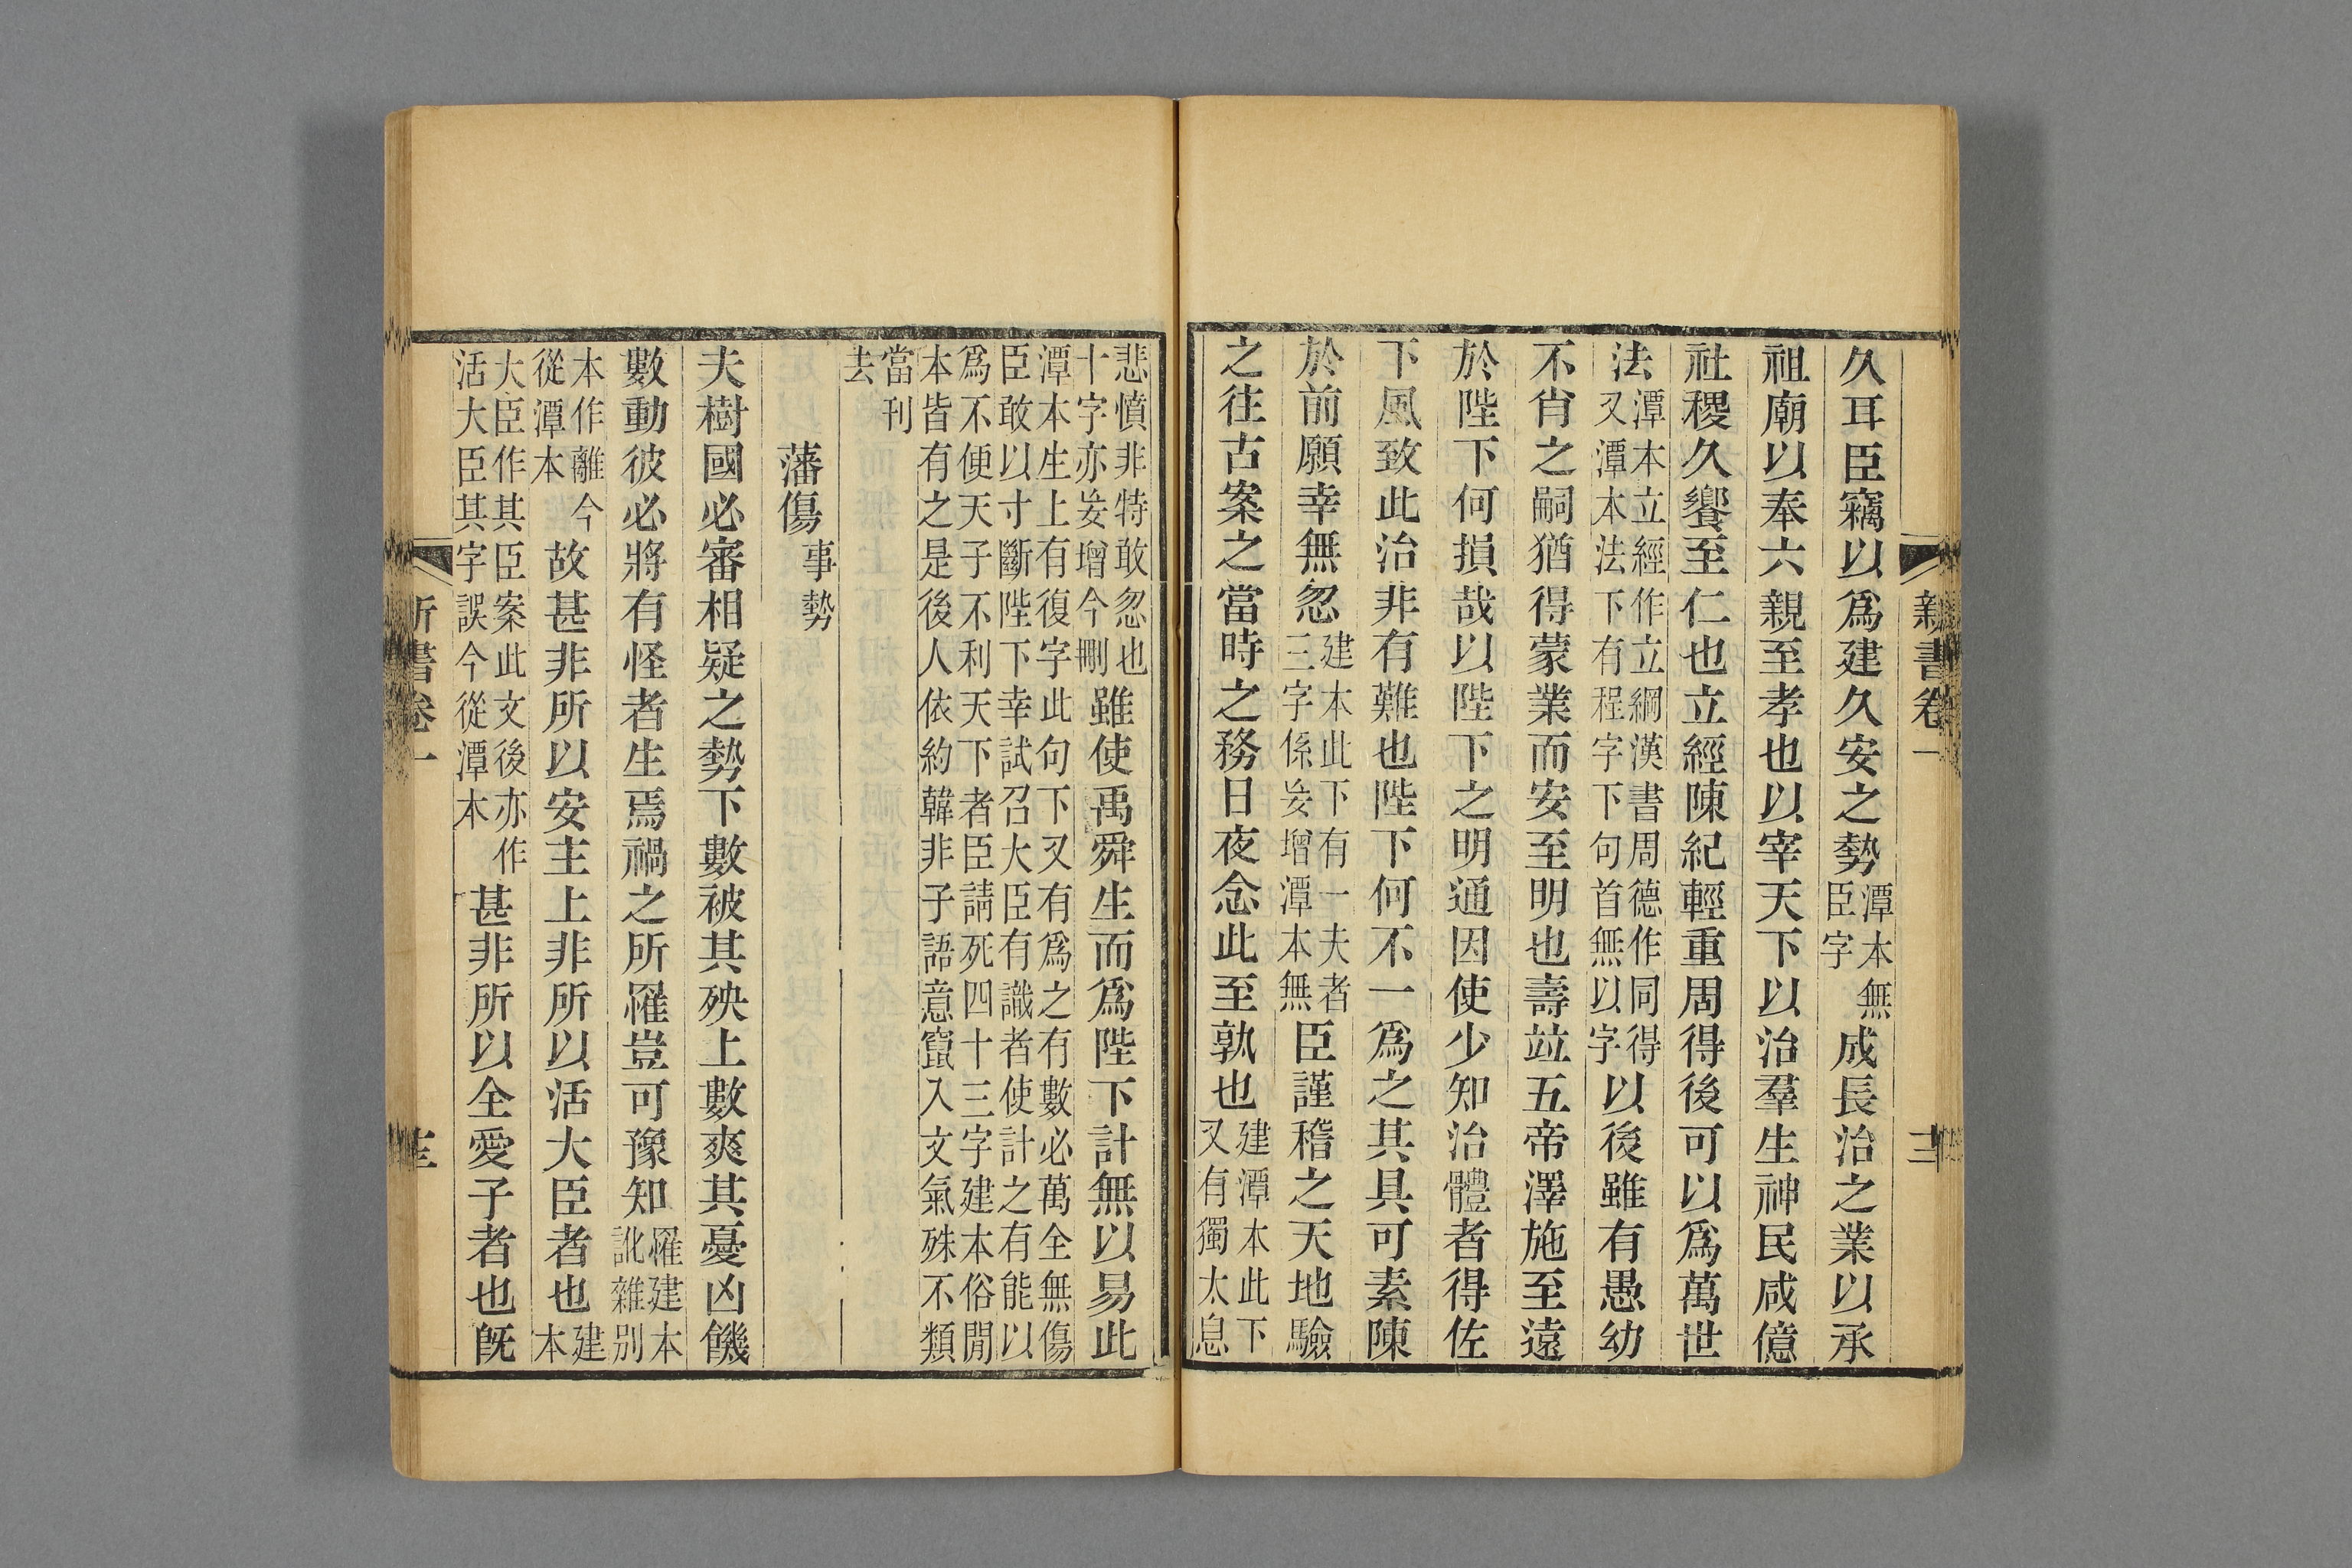 新書卷一
久耳臣竊以爲建久安之勢潭本無臣字成長治之業以承
祖廟以奉六親至孝也以宰天下以治羣生神民咸億
社稷久饗至仁也立經陳紀輕重周得後可以爲萬世
法潭本立經作立綱漢書周德作同得又潭本法下有程字下句首無以字以後雖有愚幼
不肖之嗣猶得蒙業而安至明也壽竝五帝澤施至遠
於陛下何損哉以陛下之明通因使少知治體者得佐
下風致此治非有難也陛下何不一爲之其具可素陳
於前願幸無忽建本此下有一夫者三字係妄增潭本無臣謹稽之天地驗
之往古案之當時之務日夜念此至孰也建潭本此下又有獨太息
悲憤非特敢忽也十字亦妄增今刪雖使禹舜生而爲陛下計無以易此
潭本生上有復字此句下又有爲之有數必萬全無傷
臣敢以寸斷陛下幸試召大臣有識者使計之有能以
爲不便天子不利天下者臣請死四十三字建本俗閒
本皆有之是後人依約韓非子語意竄入文氣殊不類
當刊去
藩傷事勢
夫樹國必審相疑之勢下數被其殃上數爽其憂凶饑
數動彼必將有怪者生焉禍之所罹豈可豫知罹建本訛雜別
本作離今從潭本故甚非所以安主上非所以活大臣者也建本
大臣作其臣案此文後亦作活大臣其字誤今從潭本甚非所以全愛子者也旣
新書卷一